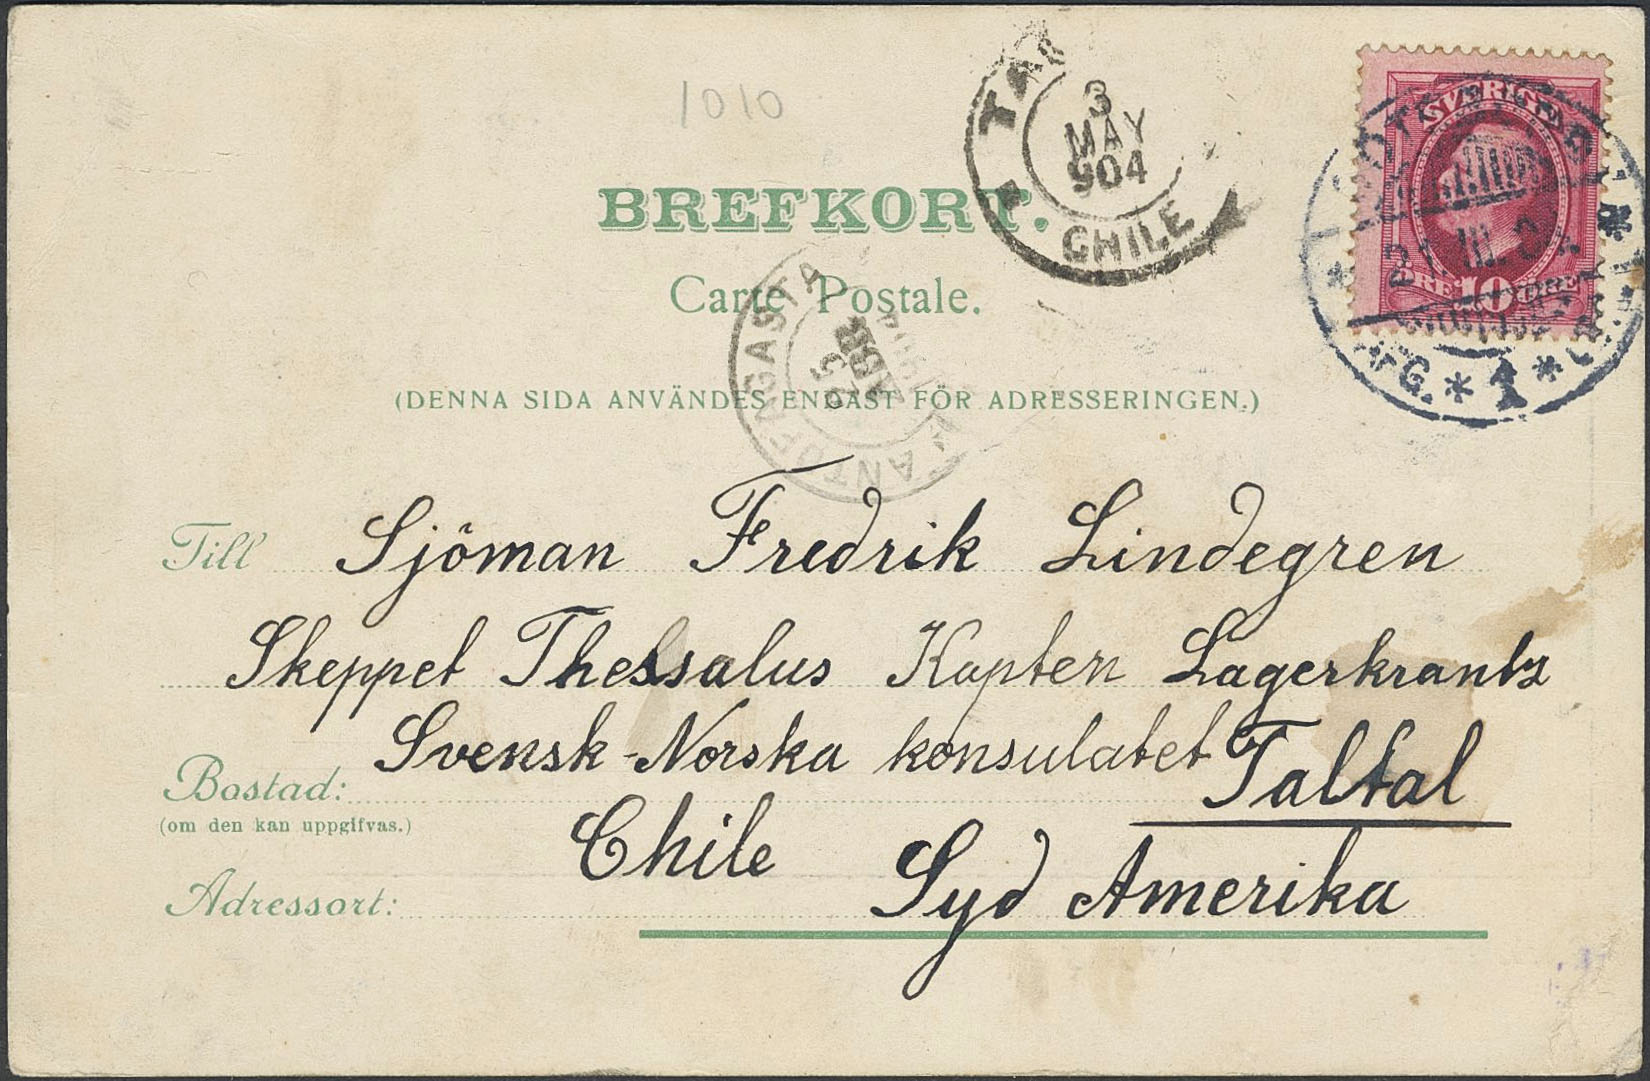 1010
3
MAY
904
CHILE
SVERIGE
ÖRE 10 ÖRE
21. III. 04
BREFKORT.
Carte Postale.
ANTOFAGASTA
25
ABR
(DENNA SIDA ANVÄNDES ENDAST FÖR ADRESSERINGEN.)
Till Sjöman Fredrik Lindegren
Skeppet Thessalus Kapten Lagerkrantz
Svensk-Norska konsulatet Taltal
Bostad:
(om den kan uppgifvas.)
Chile Syd Amerika
Adressort: